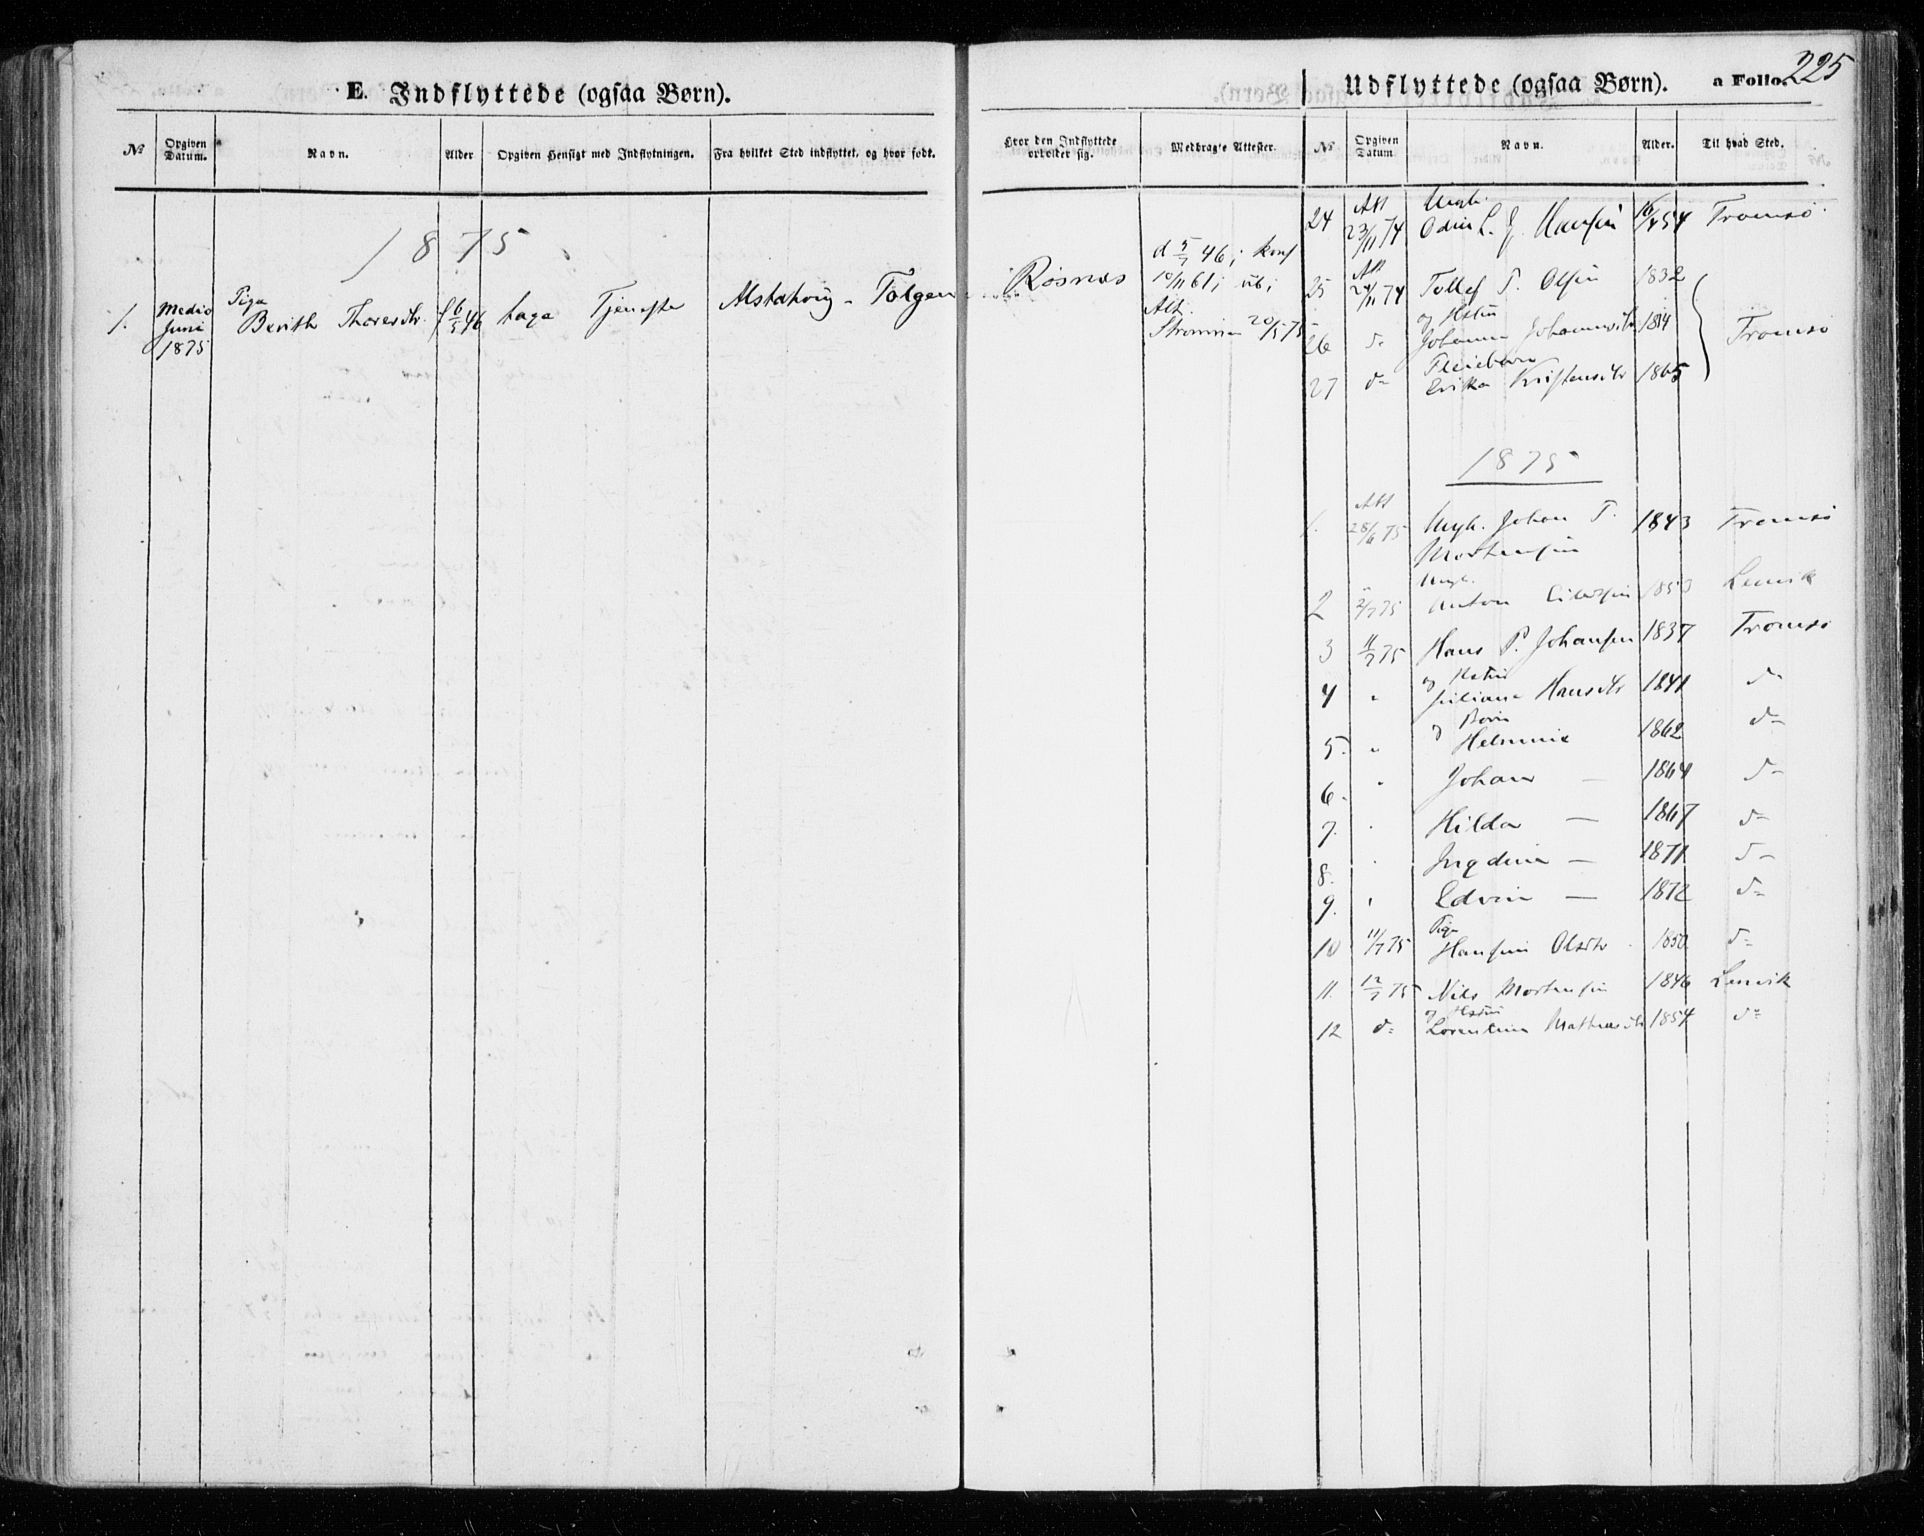 225
E. Indflyttede (ogsaa Børn).
Udflyttede (ogsaa Børn). a Folio.
No Opgiven Datum. Navn. Alder Opgiven Hensigt med Indflytningen. Fra hvilket Sted indflyttet, og hvor født.
Hvor den Indflyttede opholder sig. Medbragte Attester. No Opgiven Datum Navn. Alder. Til hvad Sted.
1875
1. Medio Juni 1875 Pige Berith Thoresdtr. f 6/5 46 tage Tjeneste Alstahoug - Tolgen Rosnæs
d 5/7 46; konf
10/11 61; ub;
Att.
Strømmen 20/5 75
24 Att 23/11 74 Ungk. Odin L. J. Hansen 16/4 54 Tromsø.
25 Att 24/11 74 Tollef T. Olsen 1832
og Hstru
26 do Johanna Johannesdtr 1814 Tromsø
Pleiebarn
27 do Erika Kristensdtr 1865
1875
1. Att 28/6 75 Ungk. Johan P. Mortensen 1843 Tromsø
Ungk.
2 2/7 75 Anton 1853 Lenvik
3 11/7 75 Hans P. Johansen 1837 Tromsø
og Hstru
4 " Juliane Hansdtr 1841 do
og Børn
5. " Helmine 1862 do
6. " Johan — 1864 do
7. " Hilda — 1867 do
8. " Ingdine — 1871 do
9. " Edvin — 1872 do
Pige
10 11/7 75 Hansine Olsdtr 1850 do
11. 12/7 75 Nils Mortensen 1846 Lenvik
og Hstru
12 do Lorentine Mathiasdtr 1854 do